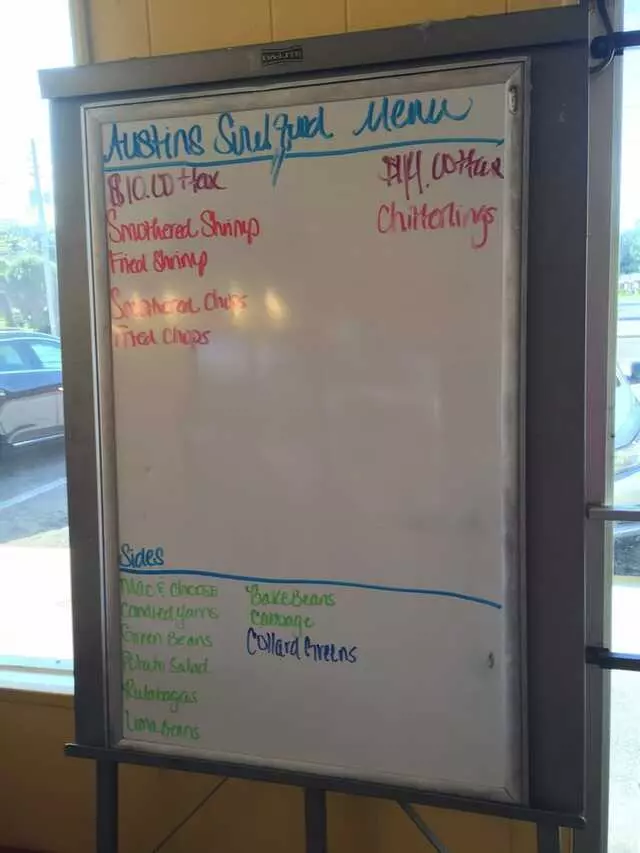 Austins Soulfood Menu
$10.00 + tax
Smothered Shrimp
Fried Shrimp
Smothered Chops
Fried Chops
$14.00 + tax
Chitterlings
Sides
Mac & Cheese
Candied Yams
Green Beans
Potato Salad
Rutabagas
Lima Beans
Bake Beans
Cabbage
Collard Greens